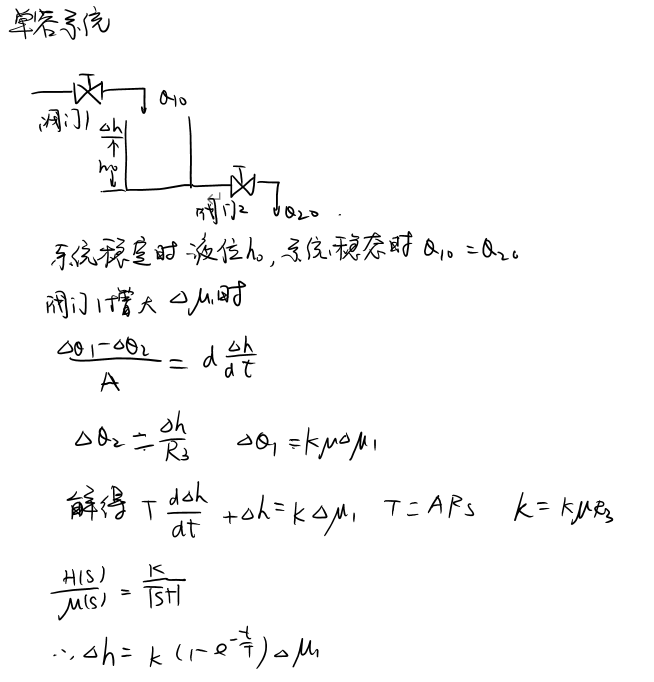 单容系统
Q10
阀门1
Δh
h0
阀门2
Q20
系统稳定时液位h0,系统稳态时 Q10 = Q20
阀门1增大 Δμ1时
(ΔQ1-ΔQ2)/A = d Δh/dt
ΔQ2 = Δh/R3 ΔQ1 = KμΔμ1
解得 T dΔh/dt + Δh = KΔμ1 T = ARs K = KμR3
H(S)/μ(S) = K/(TS+1)
∴ Δh = K(1-e^(-t/T))Δμ1